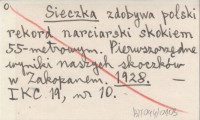 Sieczka zdobywa polski
rekord narciarski skokiem
55-metrowym. Pierwszorzędne
wyniki naszych skoczków
w Zakopanem. 1928. —
IKC 19, nr 10.